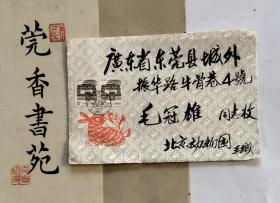 莞香書苑
廣东省东莞县城外
振华路牛骨巷4號
毛冠雄 同志收
北京动物园